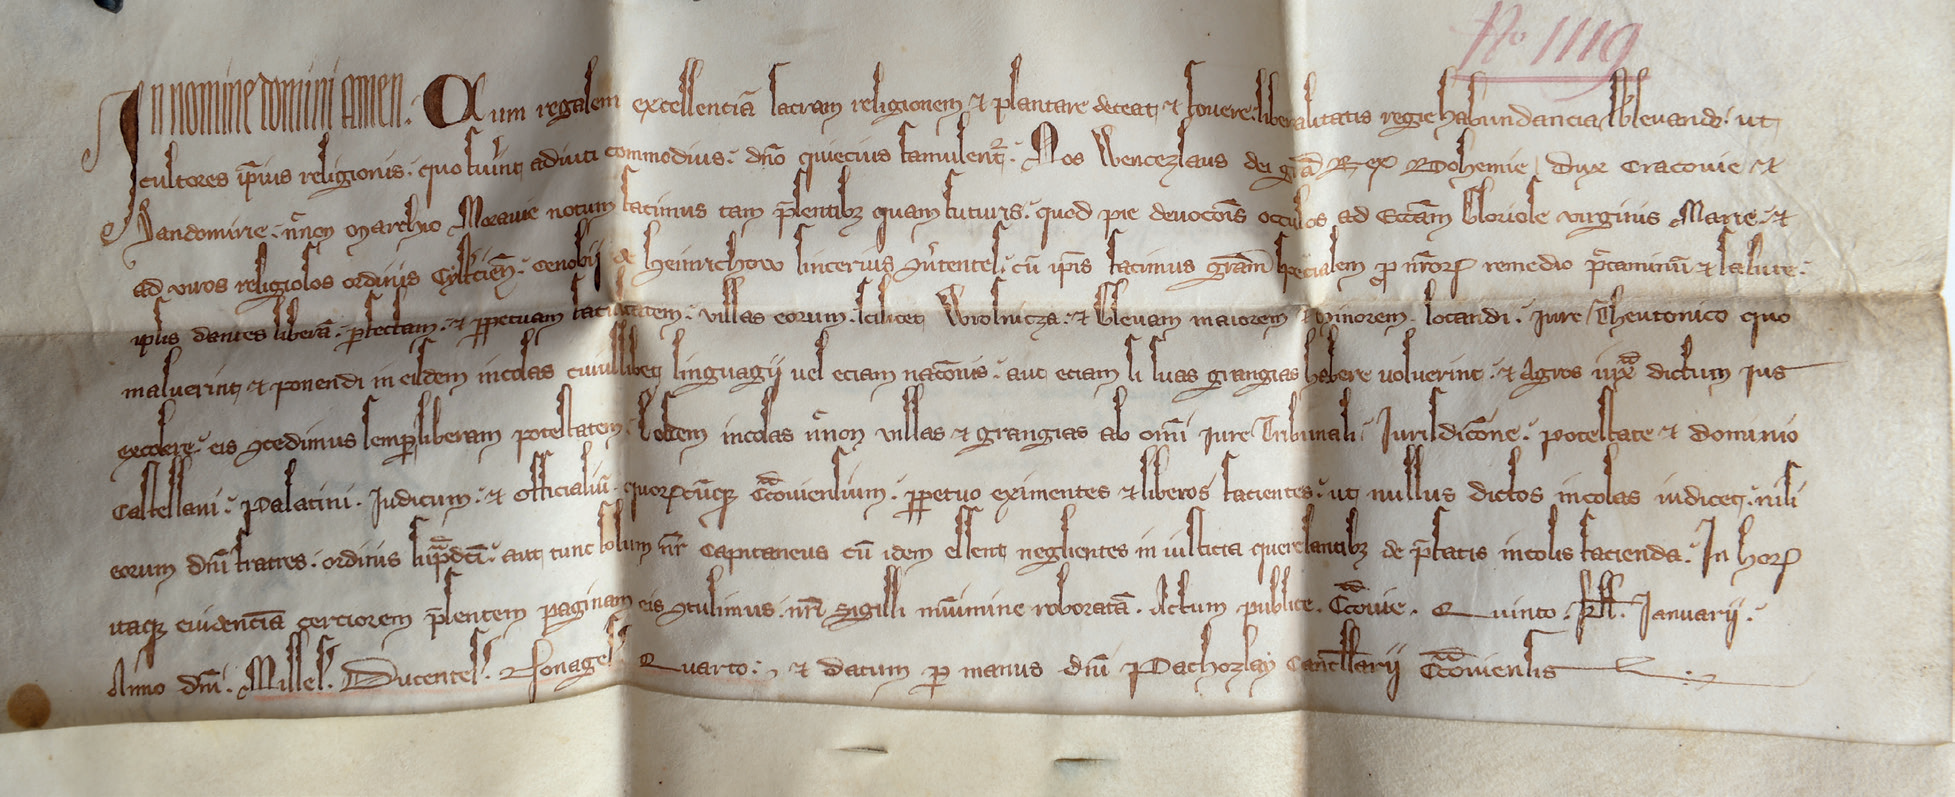 No 1119
In nomine domini amen. Cum regalem excellenciā sacram religionem et plantare deceat et fovere. liberalitatis regie habundancia sublevando. ut
cultores ip̄ius religionis. quo fuīnt adiuti commodius. dn̄o quiecius famulent᷑. Nos Wencezlaus dei gr̄a Rex Bohemie, dux Cracovie et
Sandomirie. n̄non marchio Moravie notum facimus tam p̄sentibꝫ quam futuris. quod pie devoc̄ois occulos ad Ecc̄am Gloriose virginis Marie. et
ad viros religiosos ordinis Cyst̄cien̄. cenobij de Heinrichow sincerius ꝯ̄vtentes. cū ip̄is facimus gr̄am specialem ꝓ nr̄orꝝ remedio p̄caminū et salute.
ipsis dantes liberā. ꝑfectam. et ꝑpetuam facultatem. villas eorum. scilicet Wrosnicza. et maiorem et minorem. locandi. iure Theutonico quo
maluerint et ponendi in eisdem incolas cuiuslibet linguagij vel eciam nac̄ois. aut eciam si suas grangias habere voluerint. et Agros iux̄ dictum ius
excolere. eis ꝯcedimus semꝑ liberam potestatem. Eosdem incolas n̄non villas et grangias ab om̄i iure Tribunali. Jurisdic̄one. potestate et dominio
Castellani. Palatini. Judicum. et officialiū. quorꝝcūqꝫ C̄coviensium. ꝑpetuo eximentes et liberos facientes. ut nullus dictos incolas iudicet. nisi
eorum dn̄i fratres. ordinis sup̄dc̄i. aut tunc solum nr̄ Capitaneus cū idem essent neglientes in iusticia querelantibꝫ de p̄fatis incolis facienda. In horꝝ
itaqꝫ evidenciā cerciorem p̄sentem paginam eis ꝯtulimus. nr̄i Sigilli mūimine roboratā. Actum publice. C̄covie. Quinto. kl̄. Januarij.
Anno dn̄i. Milles̄. Ducentes̄. Nonages̄ Quarto. et datum ꝑ manus dn̄i Pachozlay Canc̄llarij C̄coviensis